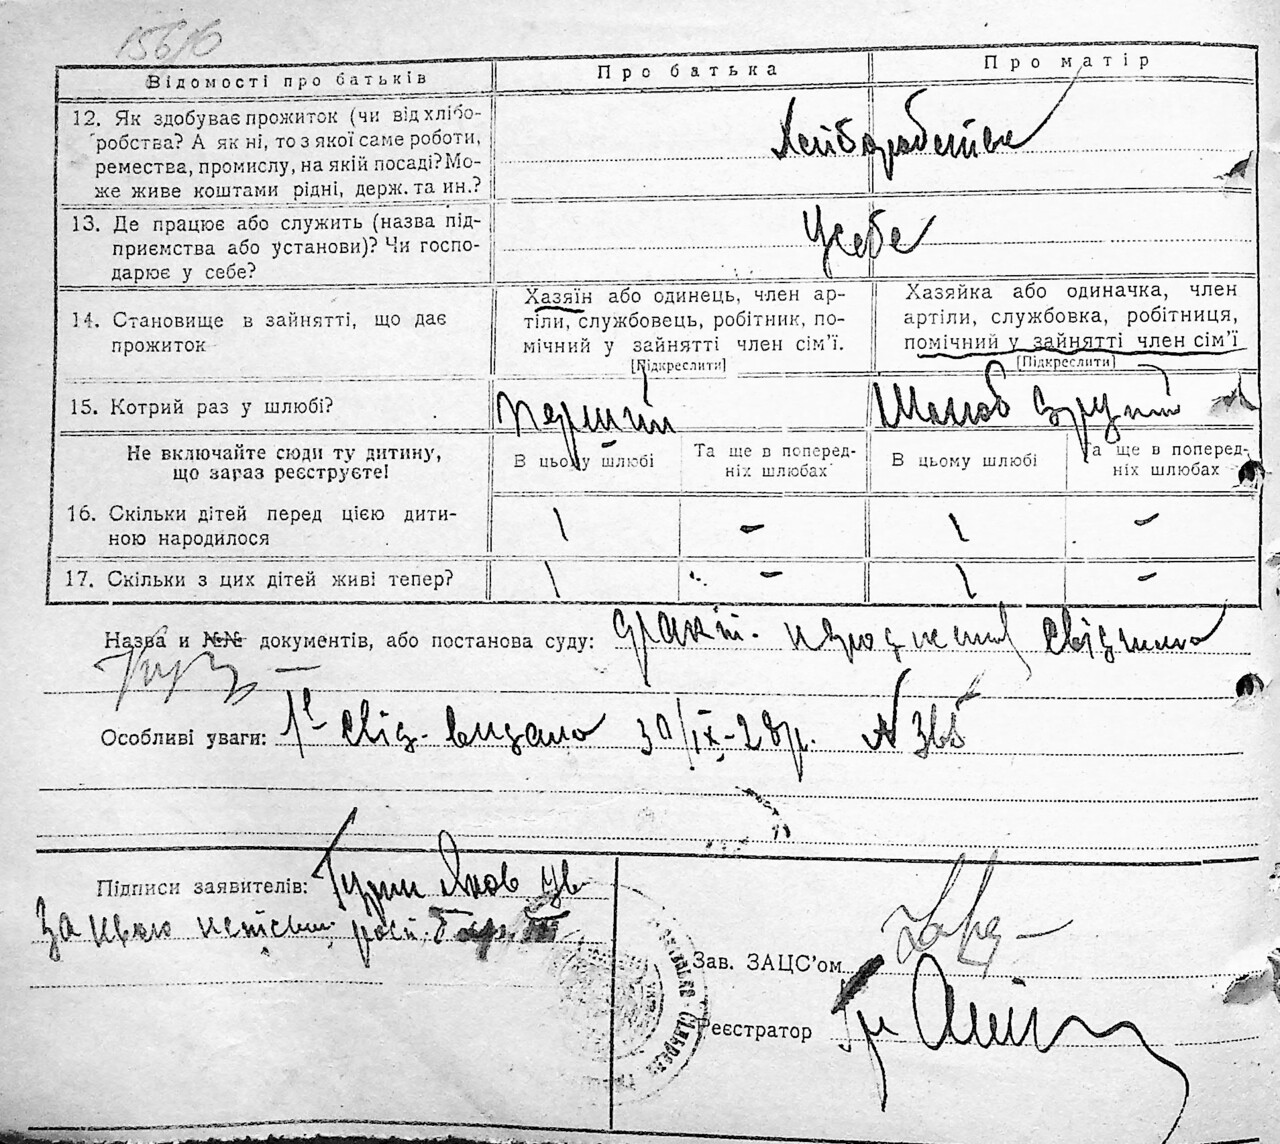 15616
Відомості про батьків
Про батька
Про матір
12. Як здобуває прожиток (чи від хлібо-
робства? А як ні, то з якої саме роботи,
ремества, промислу, на якій посаді? Мо-
же живе коштами рідні, держ. та ин.?
Хліборобство
13. Де працює або служить (назва під-
приємства або установи)? Чи госпо-
дарює у себе?
У себе
14. Становище в зайнятті, що дає
прожиток
Хазяїн або одинець, член ар-
тіли, службовець, робітник, по-
мічний у зайнятті член сім'ї.
[Підкреслити]
Хазяйка або одиначка, член
артіли, службовка, робітниця,
помічний у зайнятті член сім'ї
[Підкреслити]
15. Котрий раз у шлюбі?
перший
Шлюб другий
Не включайте сюди ту дитину,
що зараз реєструєте!
В цьому шлюбі
Та ще в поперед-
ніх шлюбах
В цьому шлюбі
Та ще в поперед-
ніх шлюбах
16. Скільки дітей перед цією дити-
ною народилося
\ - \ -
17. Скільки з цих дітей живі тепер?
\ - \ -
Назва и №№ документів, або постанова суду:
Особливі уваги: свід. видано 30/ІХ-28р. N 386
Підписи заявителів: Яков
За
Зав. ЗАЦС'ом
Реєстратор